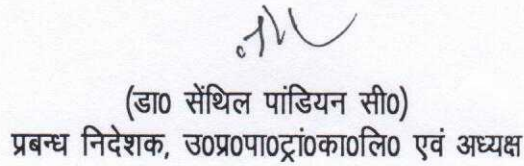 (डा० सेंथिल पांडियन सी०)
प्रबन्ध निदेशक, उ०प्र०पा०ट्रां०का०लि० एवं अध्यक्ष